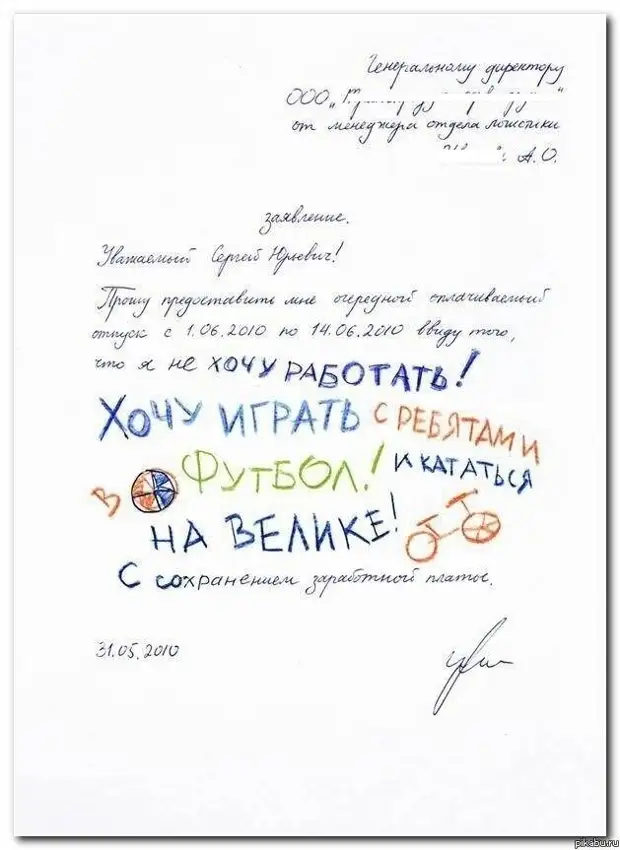 Генеральному директору
ООО „
от менеджера отдела логистики
А.О.
заявление.
Уважаемый Сергей Юрьевич!
Прошу предоставить мне очередной оплачиваемый
отпуск с 1.06.2010 по 14.06.2010 ввиду того,
что я не ХОЧУ РАБОТАТЬ!
ХОЧУ ИГРАТЬ С РЕБЯТАМИ
В ФУТБОЛ! И КАТАТЬСЯ
НА ВЕЛИКЕ!
С сохранением заработной платы.
31.05.2010
pikabu.ru